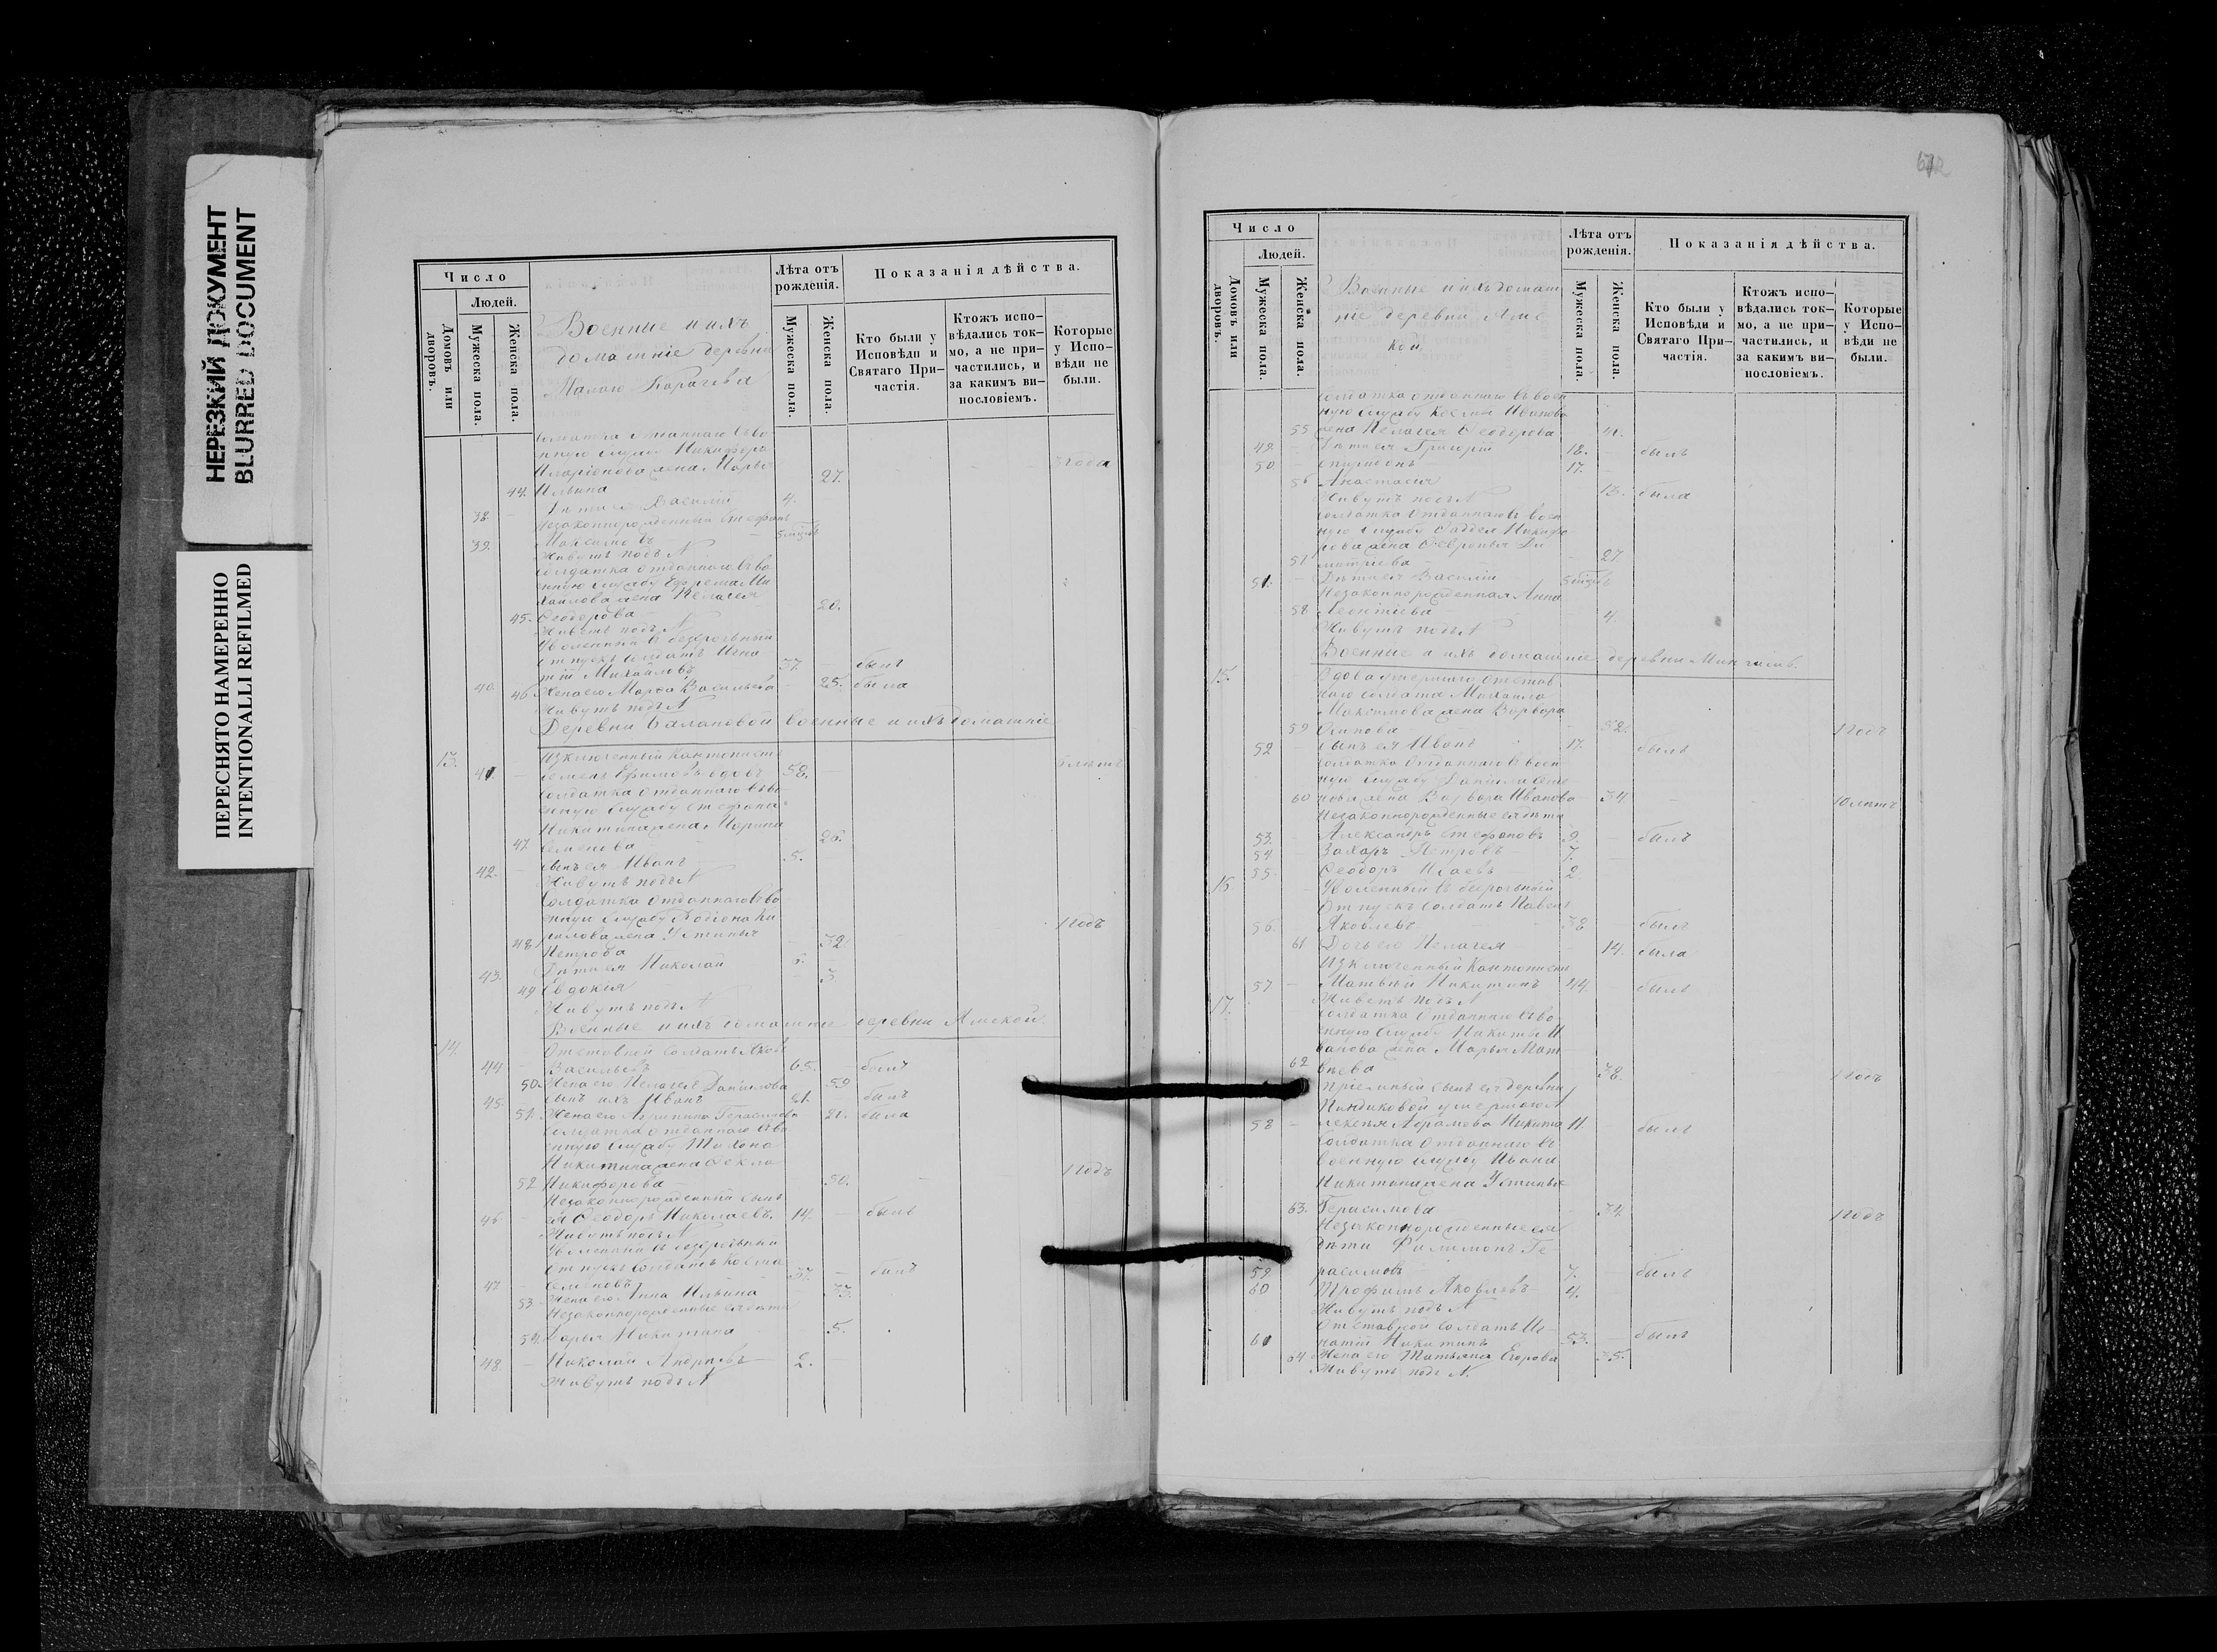 НЕРЕЗКИЙ ДОКУМЕНТ
BLURRED DOCUMENT
ПЕРЕСНЯТО НАМЕРЕННО
INTENTIONALLI REFILMED
Число
Людей.
Домовъ или дворовъ.
Мужеска пола.
Женска пола.
Военные и ихъ
домашніе деревни
Лѣта отъ рожденія.
Мужеска пола.
Женска пола.
Показанія дѣйства.
Кто были у Исповѣди и Святаго При-частія.
Ктожъ испо-вѣдались ток-мо, а не при-частились, и за какимъ ви-нословіемъ.
Которые у Испо-вѣди не были.
нную службу Никифора
Иларіонова жена Марья 3 года
44. Ильина 27.
38. Дѣти ея Василій 4.
Незаконнорожденный Стефанъ
39. Максимовъ
Живутъ подъ №
Солдатка отданнаго въ во
енную службу Ефрема Ми
хайлова жена Пелагея
45. Ѳеодорова 20.
Живетъ подъ №
Уволенный въ безсрочный
отпускъ солдатъ Игна
40. тій Михайловъ 37. былъ
46. Жена его Марѳа Васильева 25. была
Живутъ подъ №
Деревни Балановой военные и ихъ домашніе
13. Изключенный Кантонистъ
41 Семенъ Ефимовъ вдовъ 58.
Солдатка отданнаго въ во
енную службу Стефана
Никитина жена Ирина
47 Семенова 26.
42. Сынъ ея Иванъ 5.
Живутъ подъ №
Солдатка отданнаго въ во
енную службу Родіона Ки
рилова жена Устинья 1 годъ
48 Петрова 32
43. Дѣти ея Николай
49 Евдокия 3.
Живутъ подъ №
Военные и ихъ домашніе деревни Ямской
14. Отставной солдатъ Яковъ
44 Васильевъ 65. былъ
50. Жена его Пелагея Данилова 59
45. Сынъ ихъ Иванъ 21. былъ
51. Жена его Агрипина Герасимова 21. была
Солдатка отданнаго въ во
енную службу Тихона
Никитина жена Ѳекла 1 годъ
52 Никифорова 50.
Незаконнорожденный сынъ
46. ея Ѳеодоръ Николаевъ. 14. былъ
Живутъ подъ №
Уволенный въ безсрочный
отпускъ солдатъ Косма
47 Семеновъ 37. былъ
53. Жена его Анна Ильина 33.
Незаконнорожденные ея дѣти
54. Дарья Никитина 5.
48. Николай Андреевъ 2.
Живутъ подъ №
672
Число
Людей.
Домовъ или дворовъ.
Мужеска пола.
Женска пола.
Военные и ихъ домаш
ніе деревни Ямс
кой,
Лѣта отъ рожденія.
Мужеска пола.
Женска пола.
Показанія дѣйства.
Кто были у Исповѣди и Святаго При-частія.
Ктожъ испо-вѣдались ток-мо, а не при-частились, и за какимъ ви-нословіемъ.
Которые у Испо-вѣди не были.
Солдатка отданнаго въ воен
ную службу Косьмы Иванова
55 жена Пелагея Ѳеодорова 41.
49. Дѣти ея Григорій 18. былъ
50 Спиридонъ 17.
56 Анастасія 13. была
Живутъ подъ №
Солдатка отданнаго въ воен
ную службу Ѳаддея Никифо
рова жена Ѳевронья Ди
57 митріева 27.
51. Дѣти ея Василій
Незаконнорожденная Анна
58 Леонтіева 4.
Живутъ подъ №
Военные и ихъ домашніе деревни
15. Вдова умершаго отстав
наго солдата Михаила
Максимова жена Варвара
59 Осипова 52. 1 годъ
52 Сынъ ея Иванъ 17. былъ
Солдатка отданнаго въ воен
ную службу Даніила Семе
60 нова жена Варвара Иванова 34. 10 лѣтъ
Незаконнорожденные ея дѣти
53. Александръ Стефановъ 9. былъ
54. Захаръ Петровъ 7.
55. Ѳеодоръ Исаевъ 2
16. Уволенный въ безсрочный
отпускъ солдатъ Павелъ
56. Яковлевъ 38 былъ
61 Дочь его Пелагея 14. была
Изключенный Кантонистъ
57 Матвѣй Никитинъ 44. былъ
Живетъ подъ №
17. Солдатка отданнаго въ во
енную службу Никиты И
ванова жена Марья Мат
62 вѣева 38. 1 годъ
Пріемный сынъ ея деревни
Пиндиковой умершаго А
58 лексѣя Абрамова Никита 11. былъ
Солдатка отданнаго въ
военную службу Ивана
Никитина жена Устинья
63. Герасимова 34 1 годъ
Незаконнорожденные ея
дѣти Филимонъ Ге
59 расимовъ 7. былъ
60 Трофимъ Яковлевъ 4.
Живутъ подъ №
Отставной солдатъ Иг
61 натій Никитинъ 53. былъ
64 Жена его Татьяна Егорова 35.
Живутъ подъ №